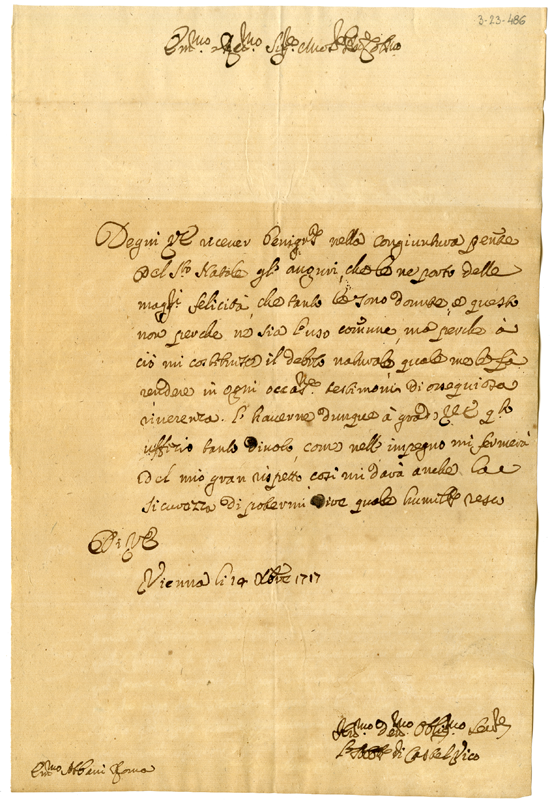 3-23-486
Em.mo e Rev.mo Sig.re
Degni V.E. ricever benig.te nella congiuntura
del S.to Natale gl'auguri, che le ne porto delle
magg.ri felicità, che tanto le sono dovute, e questo
non perche ne sia l'uso comune, ma perche à
ciò mi costituisca il debito naturale, quale me le fà
rendere in ogni occas.ne testimonii di ossequiosa
riverenza. L'haverne dunque à grado V.E. q.to
ufficio tanto divoto, come nell'impegno mi fermerà
del mio gran rispetto così mi darà anche la
sicurezza di potermi dire quale humilm.te resto
Di V.E.
Vienna li 14 Xbre 1717
Hu.mo Dev.mo Obblig.mo Ser.re
di Castelvico
Em.mo Albani Roma